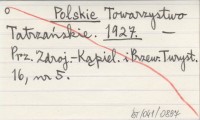 Polskie Towarzystwo
Tatrzańskie. 1927. —
Prz. Zdroj.-Kąpiel. i Przew. Turyst.
16, nr 5.